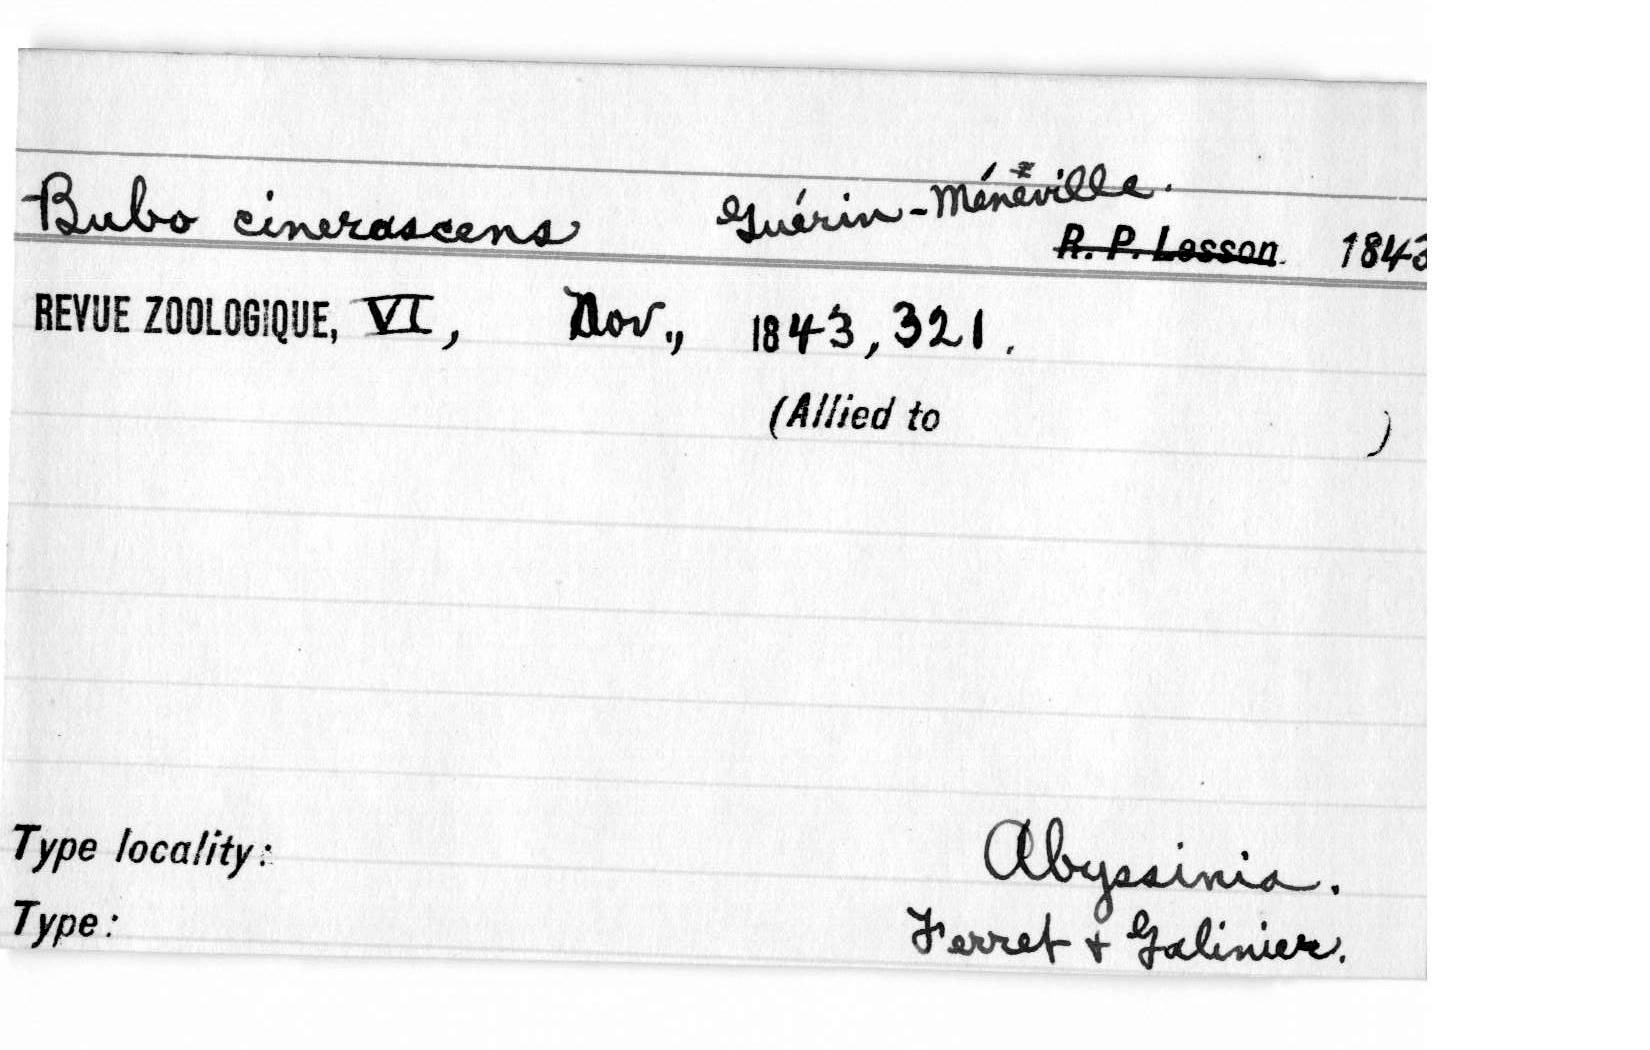 Bubo cinerascens Guérin-Ménéville.
R. P. Lesson. 1843
REVUE ZOOLOGIQUE, VI, Nov., 1843, 321.
(Allied to )
Type locality: Abyssinia.
Type: Ferret + Galinier.